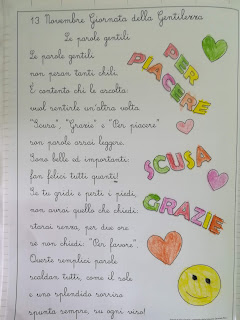 13 Novembre Giornata della Gentilezza
Le parole gentili
Le parole gentili
non pesan tanti chili.
È contento chi le ascolta:
vuol sentirle un'altra volta.
"Scusa", "Grazie" e "Per piacere"
son parole assai leggere.
Sono belle ed importanti:
fan felici tutti quanti!
Se tu gridi e pesti i piedi,
non avrai quello che chiedi:
starai senza, per due ore
se non chiedi: "Per favore".
Queste semplici parole
scaldan tutti, come il sole
e uno splendido sorriso
spunta sempre, su ogni viso!
PER
PIACERE
SCUSA
GRAZIE